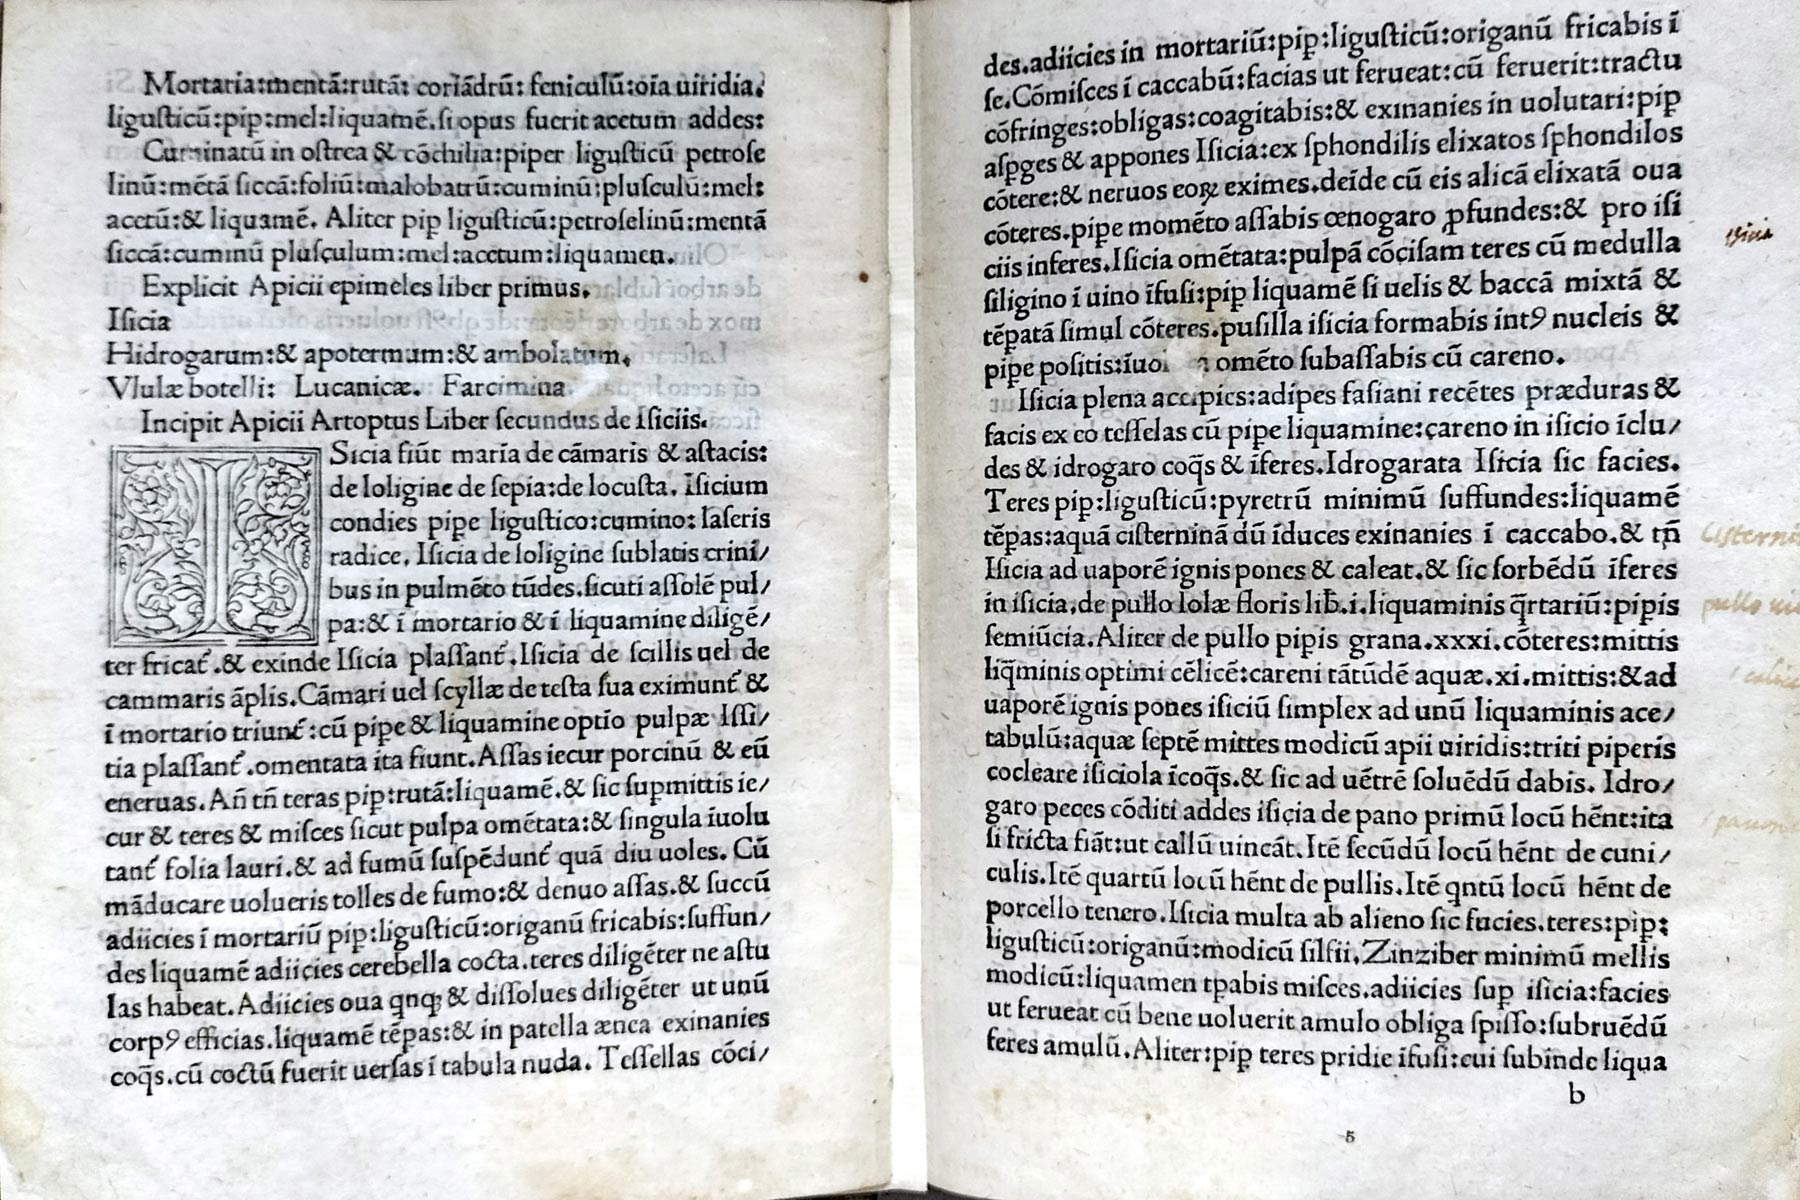 Mortaria:mentā:rutā: coriādrū: feniculū:oīa uiridia.
ligusticū:piꝑ:mel:liquamē.si opus fuerit acetum addes:
Cuminatū in ostrea & cōchilia:piper ligusticū petrose
linū:mētā siccā:foliū:malobatrū:cuminū:plusculū:mel:
acetū:& liquamē. Aliter piꝑ ligusticū:petroselinū:mentā
siccā:cuminū plusculum:mel:acetum:liquamen.
Explicit Apicii epimeles liber primus.
Isicia
Hidrogarum:& apotermum:& ambolatum.
Vlulæ botelli: Lucanicæ. Farcimina.
Incipit Apicii Artoptus Liber secundus de Isiciis.
ISicia fiūt maria de cāmaris & astacis:
de loligine de sepia:de locusta. Isicium
condies pipe ligustico:cumino: laseris
radice. Isicia de loligine sublatis crini/
bus in pulmēto tūdes.sicuti assolē pul/
pa:& ī mortario & ī liquamine diligē/
ter fricat̄.& exinde Isicia plassant̄.Isicia de scillis uel de
cammaris āplis.Cāmari uel scyllæ de testa sua eximunt̄ &
ī mortario triunt̄:cū piꝑe & liquamine optīo pulpæ Issi/
tia plassant̄.omentata ita fiunt.Assas iecur porcinū & eū
eneruas. Añ tñ teras piꝑ:rutā:liquamē.& sic suꝑmittis ie/
cur & teres & misces sicut pulpa omētata:& singula iuolu
tant̄ folia lauri.& ad fumū suspēdunt̄ quā diu uoles. Cū
māducare uolueris tolles de fumo:& denuo assas.& succū
adiicies ī mortariū piꝑ:ligusticū:origanū fricabis:suffun/
des liquamē adiicies cerebella cocta.teres diligēter ne astu
las habeat.Adiicies oua qnqꝫ & dissolues diligēter ut unū
corpꝰ efficias.liquamē tēpas:& in patella ænea exinanies
coq̄s.cū coctū fuerit uersas ī tabula nuda. Tessellas cōci/
des.adiicies in mortariū:piꝑ:ligusticū:origanū fricabis ī
se.Cōmisces ī caccabū:facias ut ferueat:cū feruerit:tractu
cōfringes:obligas:coagitabis:& exinanies in uolutari:piꝑ
asꝑges & appones Isicia:ex sphondilis elixatos sphondilos
cōtere:& neruos eoꝝ eximes.deīde cū eis alicā elixatā oua
cōteres.piꝑe momēto assabis œnogaro ꝓfundes:& pro isi
ciis inferes.Isicia omētata:pulpā cōcisam teres cū medulla
siligino ī uino īfusi:piꝑ liquamē si uelis & baccā mixtā &
tēpatā simul cōteres.pusilla isicia formabis intꝰ nucleis &
piꝑe positis:īuol omēto subassabis cū careno.
Isicia plena accipies:adipes fasiani recētes præduras &
facis ex eo tesselas cū piꝑe liquamine:careno in isicio īclu/
des & idrogaro coq̄s & īferes.Idrogarata Isicia sic facies.
Teres piꝑ:ligusticū:pyretrū minimū suffundes:liquamē
tēpas:aquā cisterninā dū īduces exinanies ī caccabo.& tñ
Isicia ad uaporē ignis pones & caleat.& sic sorbēdū īferes
in isicia.de pullo lolæ floris lib̄.i.liquaminis q̄rtariū:piꝑis
semiūcia.Aliter de pullo piꝑis grana.xxxi.cōteres:mittis
liq̄minis optimi cēlicē:careni tātūdē aquæ.xi.mittis:&ad
uaporē ignis pones isiciū simplex ad unū liquaminis ace/
tabulū:aquæ septē mittes modicū apii uiridis:triti piperis
cocleare isiciola īcoq̄s.& sic ad uētrē soluēdū dabis. Idro/
garo peces cōditi addes isicia de pano primū locū hēnt:ita
si fricta fiāt:ut callū uincāt.Itē secūdū locū hēnt de cuni/
culis.Itē quartū locū hēnt de pullis.Itē qntū locū hēnt de
porcello tenero.Isicia multa ab alieno sic facies.teres:piꝑ:
ligusticū:origanū:modicū silfii.Zinziber minimū mellis
modicū:liquamen tꝑabis misces.adiicies suꝑ isicia:facies
ut ferueat cū bene uoluerit amulo obliga spisso:subruēdū
feres amulū.Aliter:piꝑ teres pridie ifusi:cui subinde liqua
b
5
isicia
pullo